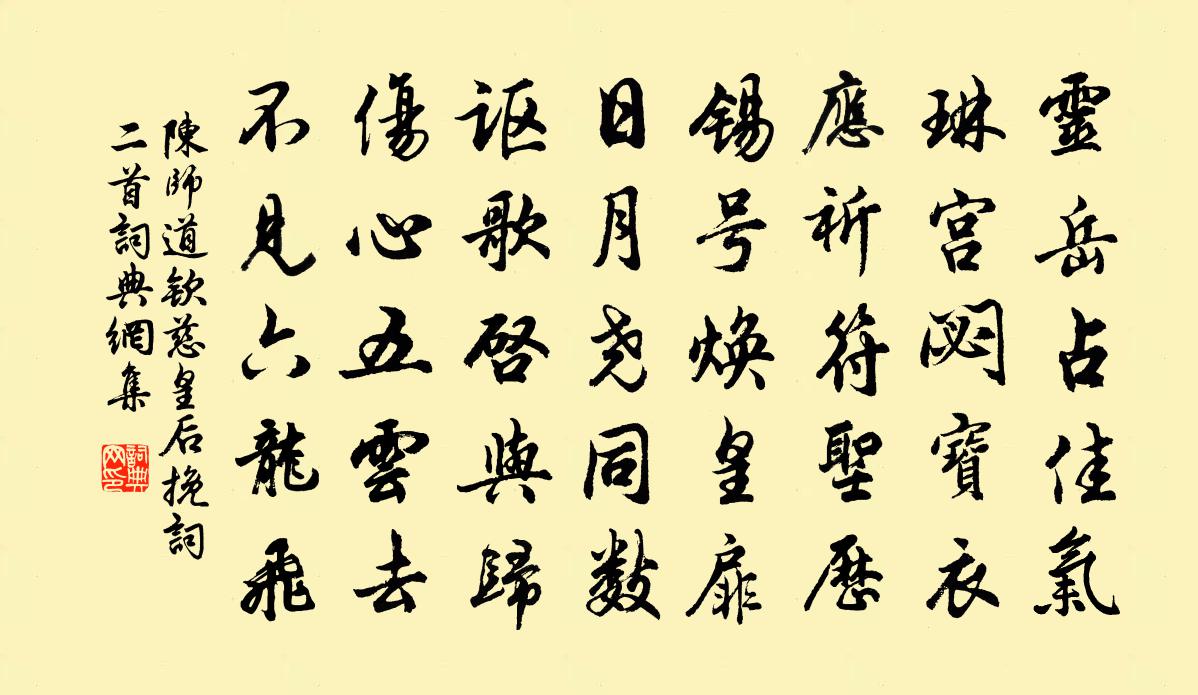 靈岳占佳氣
琳宮閟寶衣
應祈符聖歷
錫号煥皇扉
日月尧同数
讴歌啓與歸
傷心五雲去
不見六龍飛
陳師道欽慈皇后挽詞
二首詞典網集
詞典
网印